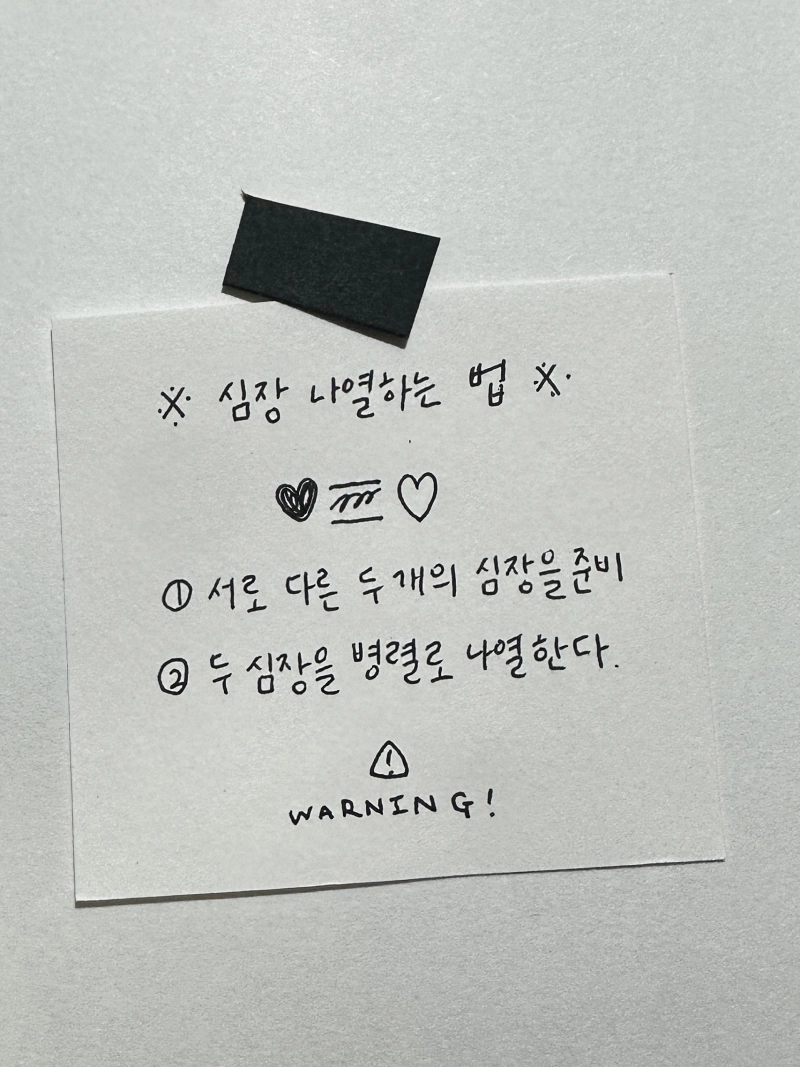 ※ 심장 나열하는 법 ※
① 서로 다른 두 개의 심장을 준비
② 두 심장을 병렬로 나열한다.
WARNING!